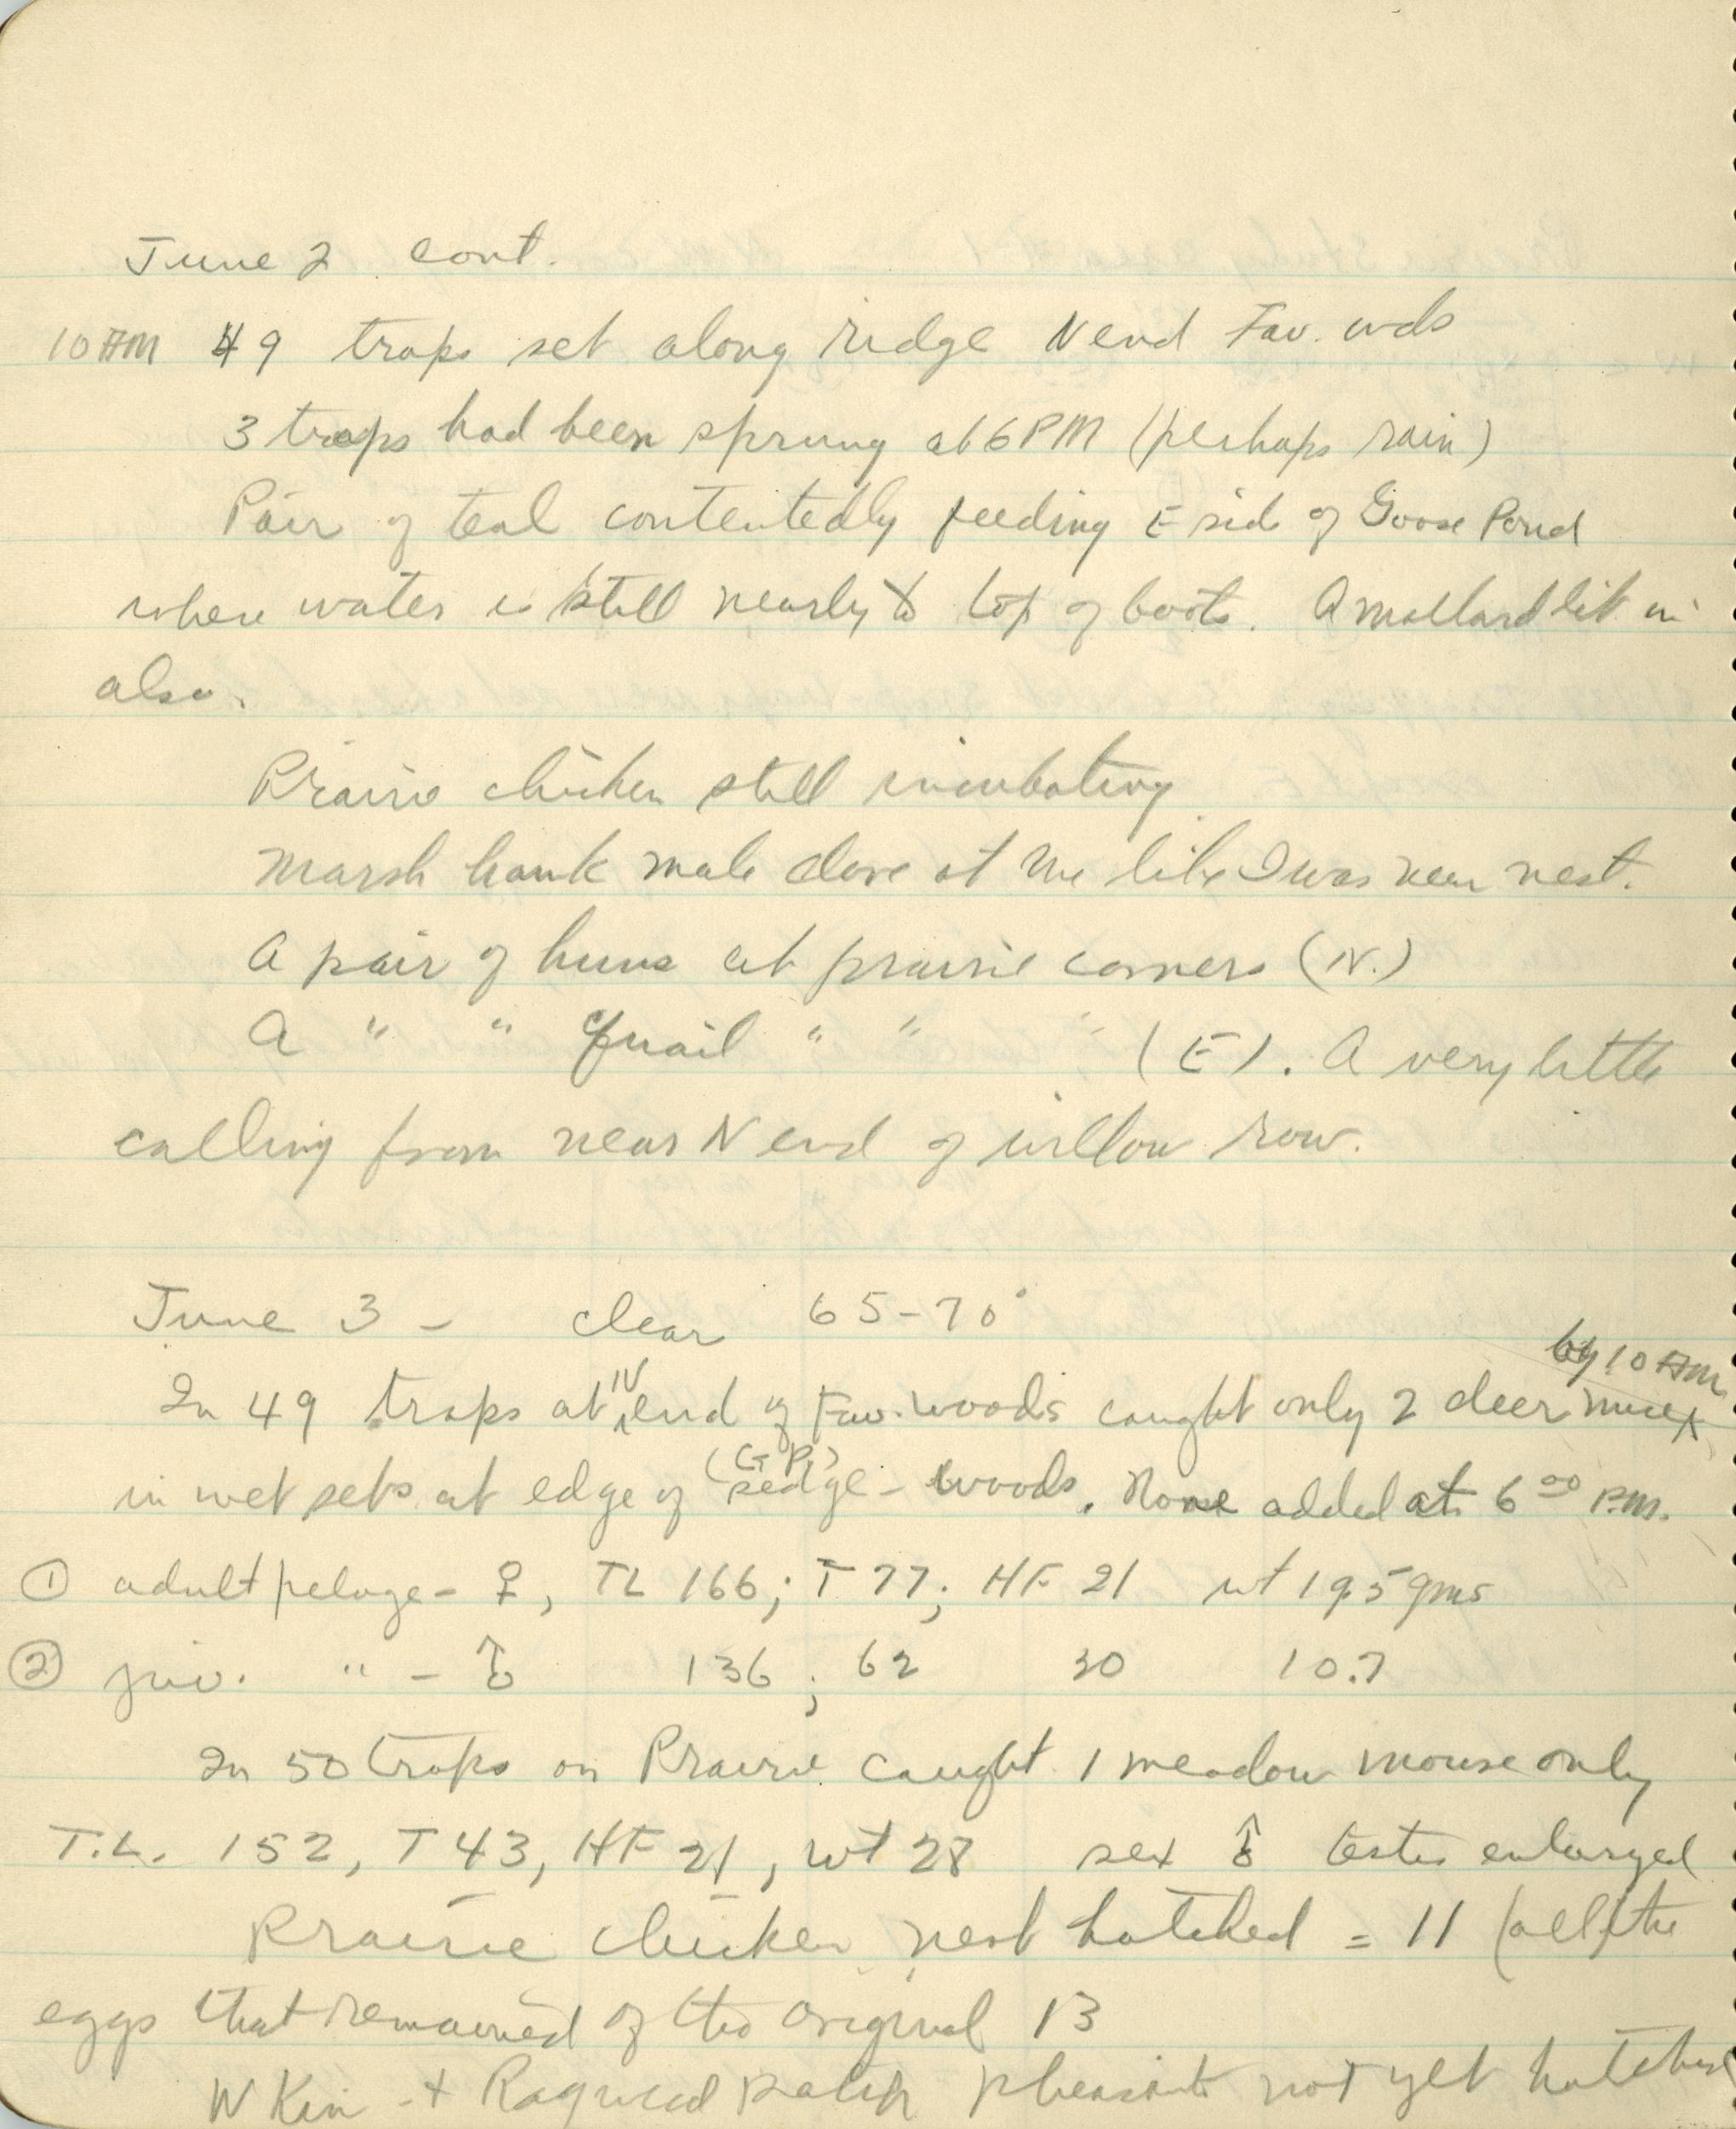 June 2 cont.
10 AM 49 traps set along ridge N end Fav. wds
3 traps had been sprung at 6 PM (perhaps rain)
Pair of teal contentedly feeding E side of Goose Pond
where water is still nearly to top of boots. A mallard lit in
also.
Prairie chicken still incubating
Marsh hawk male dove at me like I was near nest.
A pair of huns at prairie corners (N.)
A " " quail " " " (E). A very little
calling from near N end of willow row.
June 3 - clear 65-70°
by 10 AM
In 49 traps at N end of Fav. woods caught only 2 deer mice
(G. P.)
in wet sets at edge of sedge - woods. None added at 6 00 P.M.
① adult pelage - ♀, TL 166; T 77; HF 21 wt 19.5 gms
② juv. " - ♂ 136 ; 62 20 10.7
In 50 traps on Prairie caught 1 meadow mouse only
T.L. 152, T 43, HF 21, wt 28 sex ♂ testes enlarged
Prairie chicken nest hatched = 11 (all the
eggs that remained of the original 13
W Kin + Ragweed patch pheasants not yet hatched